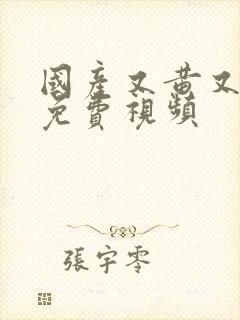 國產又黃又
免費視頻
張宇零